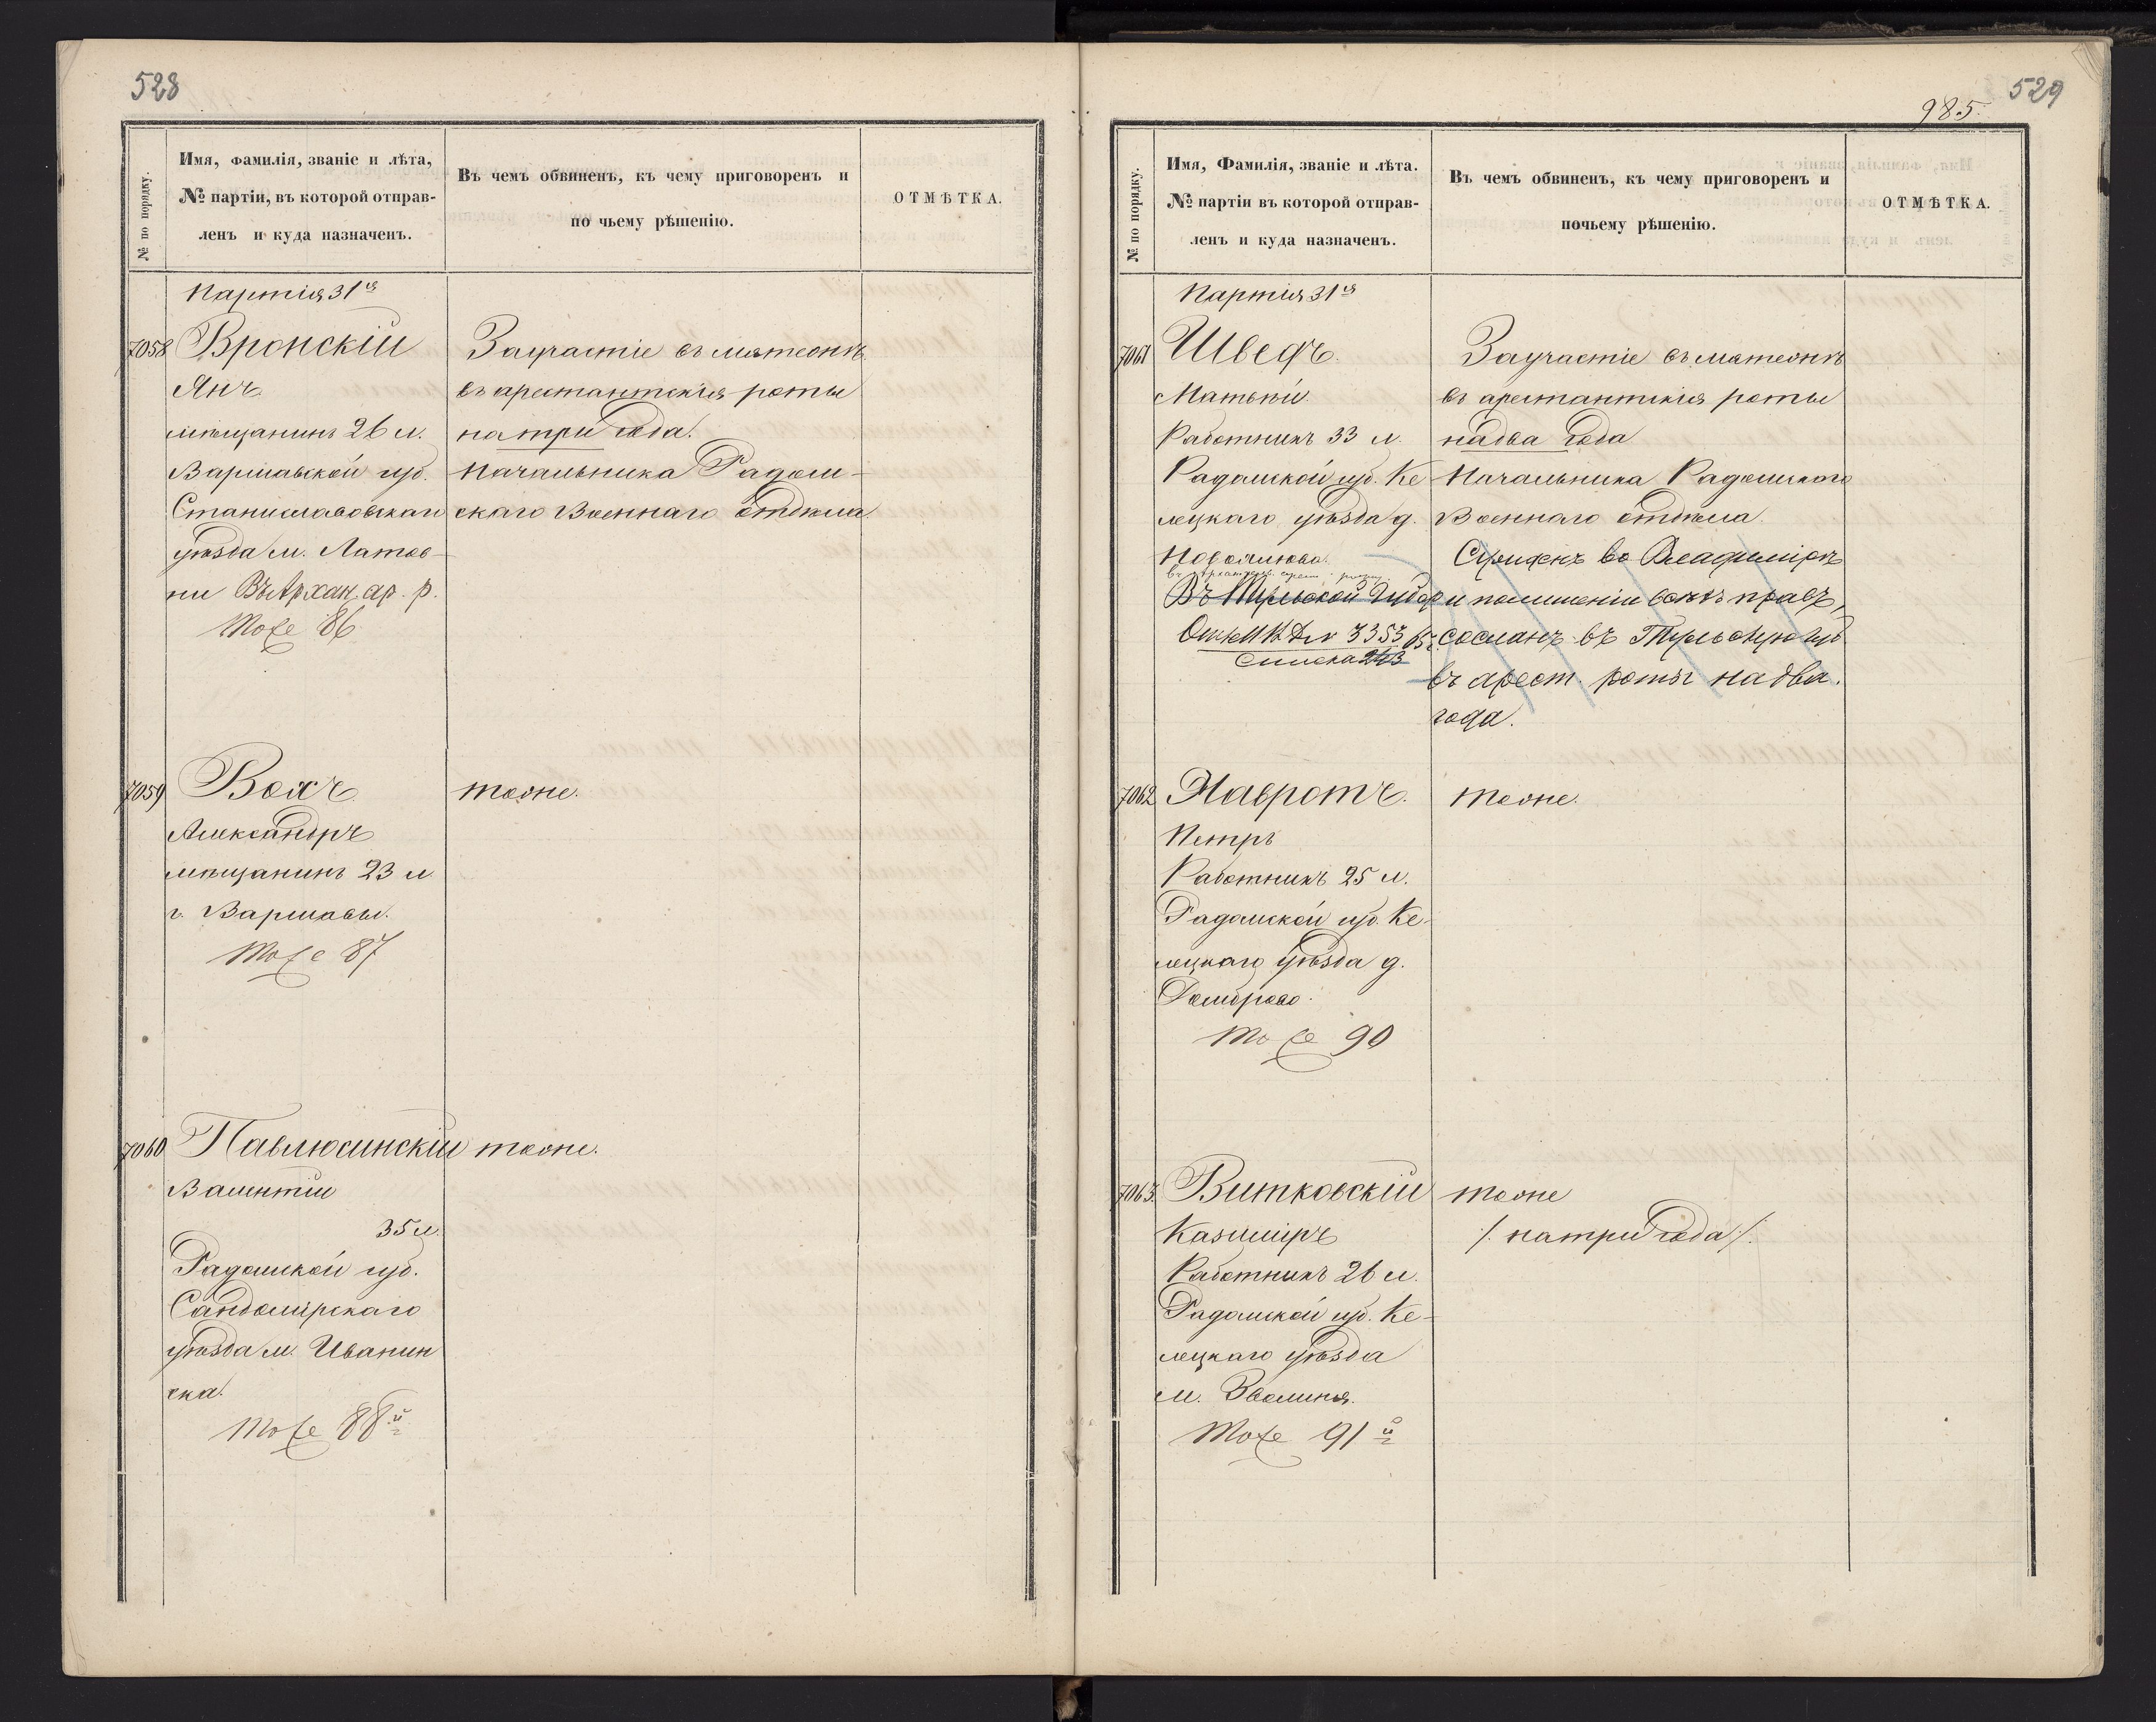 528
№ по порядку.
Имя, фамилія, званіе и лѣта,
№ партіи, въ которой отправ-
ленъ и куда назначенъ.
Въ чемъ обвиненъ, къ чему приговоренъ и
по чьему рѣшенію.
ОТМѢТКА.
Партія 31я
7058 Вронскій
Янъ
мѣщанинъ 26 л.
Варшавской губ.
Станиславовскаго
уѣзда м. Латов-
ни Въ Архан. ар. р.
Тоже 86
За участіе въ мятежѣ
въ арестантскія роты
на три года.
Начальника Радом-
скаго Военнаго отдѣла
7059 Вохъ
Александръ
мѣщанинъ 23 л
г. Варшавы.
Тоже 87
тоже.
7060 Павлюсинскій
Валентій
35 л.
Радомской губ.
Сандомірскаго
уѣзда м. Иванин
ска.
Тоже 88й
тоже.
529
985.
№ по порядку.
Имя, Фамилія, званіе и лѣта.
№ партіи въ которой отправ-
ленъ и куда назначенъ.
Въ чемъ обвиненъ, къ чему приговоренъ и
почьему рѣшенію.
ОТМѢТКА.
Партія 31я
7061 Шведъ.
Матвѣй.
Работникъ 33 л.
Радомской губ. Ке
лецкаго уѣзда д.
въ Арханг. арест. роты
Въ Тульской Губер
3353 65 г.
Списка 243
За участіе въ мятежѣ
въ арестантскія роты
на два года
Начальника Радомскаго
Военнаго отдѣла.
во Владимірѣ
и по лишеніи всѣхъ правъ,
сосланъ въ Тульскую губ
въ арест. роты на два.
года.
7062 Навротъ.
Петръ
Работникъ 25 л.
Радомской губ. Ке-
лецкаго уѣзда д.
Домброво.
Тоже 90
тоже.
7063. Витковскій
Казиміръ
Работникъ 26 л.
Радомской губ. Ке-
лецкаго уѣзда
м. Зволиня.
Тоже 91й
тоже
/. на три года /.